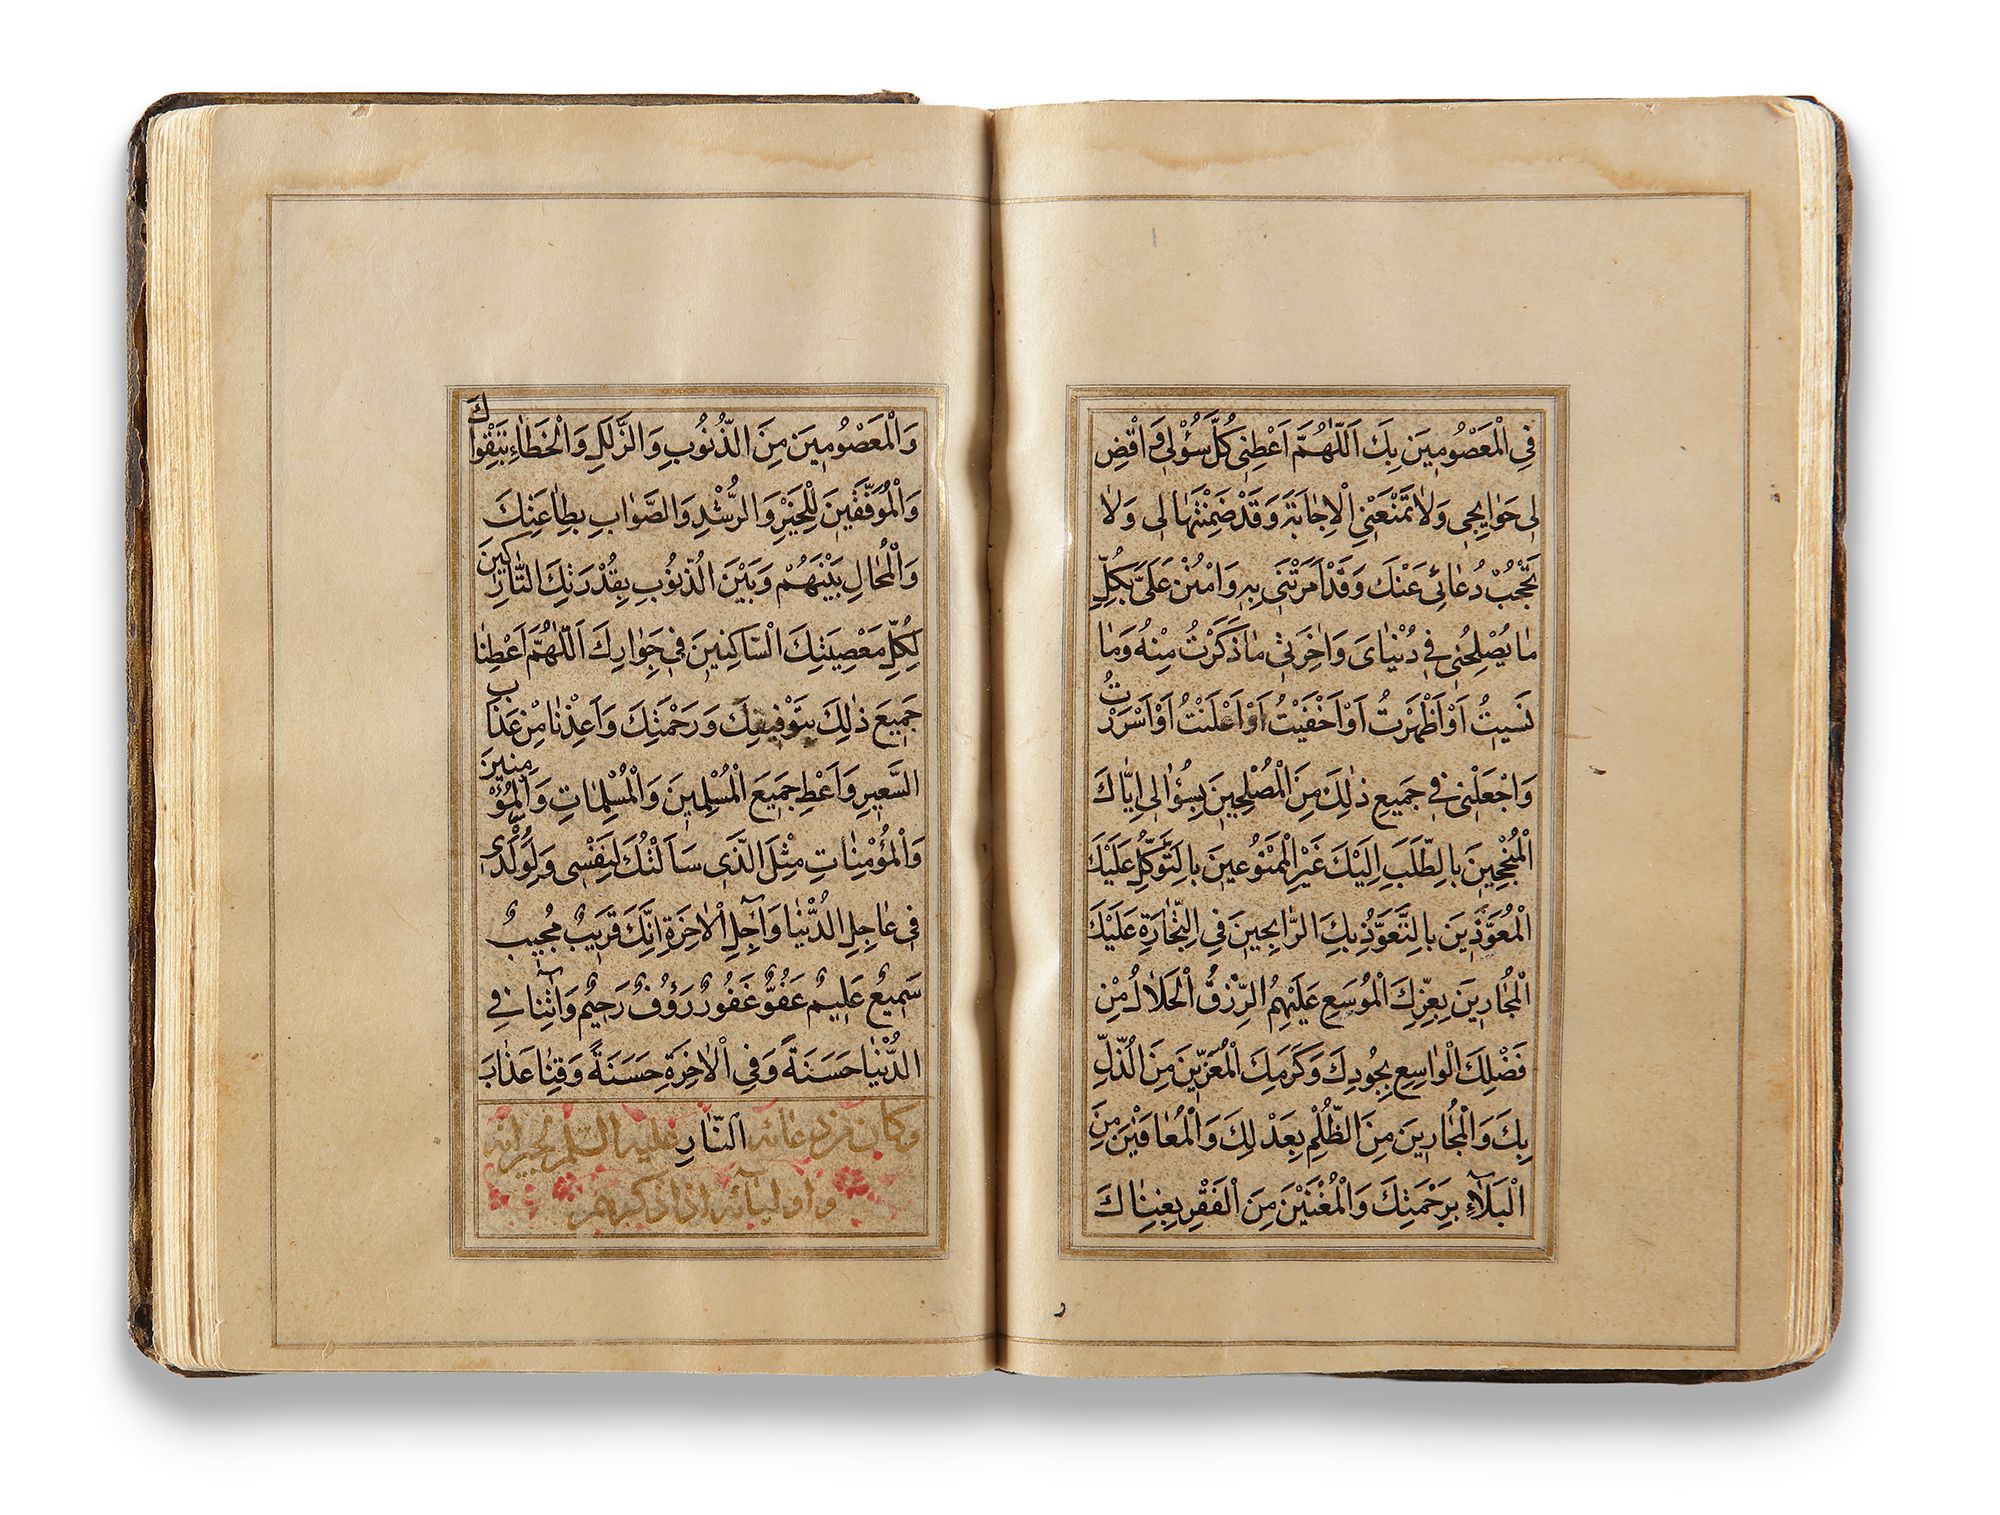 فِي الْمَعْصُومِينَ بِكَ اَللّٰهُمَّ اَعْطِنِي كُلَّ سُؤْلِي وَاقْضِ
لِي حَوَايِجِي وَلَا تَمْنَعْنِي الْاِجَابَةَ وَقَدْ ضَمِنْتَهَا لِي وَلَا
تَحْجُبْ دُعَائِي عَنْكَ وَقَدْ اَمَرْتَنِي بِهِ وَامْنُنْ عَلَيَّ بِكُلِّ
مَا يُصْلِحُنِي فِي دُنْيَايَ وَاٰخِرَتِي مَا ذَكَرْتُ مِنْهُ وَمَا
نَسِيتُ اَوْ اَظْهَرْتُ اَوْ اَخْفَيْتُ اَوْ اَعْلَنْتُ اَوْ اَسْرَرْتُ
وَاجْعَلْنِي فِي جَمِيعِ ذٰلِكَ مِنَ الْمُصْلِحِينَ بِسُؤَالِي اِيَّاكَ
الْمُنْجِحِينَ بِالطَّلَبِ اِلَيْكَ غَيْرِ الْمَمْنُوعِينَ بِالتَّوَكُّلِ عَلَيْكَ
الْمُعَوَّذِينَ بِالتَّعَوُّذِ بِكَ الرَّابِحِينَ فِي التِّجَارَةِ عَلَيْكَ
الْمُجَارِينَ بِعِزِّكَ الْمُوَسَّعِ عَلَيْهِمُ الرِّزْقُ الْحَلَالُ مِنْ
فَضْلِكَ الْوَاسِعِ بِجُودِكَ وَكَرَمِكَ الْمُعَزِّينَ مِنَ الذُّلِّ
بِكَ وَالْمُجَارِينَ مِنَ الظُّلْمِ بِعَدْلِكَ وَالْمُعَافَيْنَ مِنَ
الْبَلَاۤءِ بِرَحْمَتِكَ وَالْمُغْنَيْنَ مِنَ الْفَقْرِ بِغِنَاكَ
وَالْمَعْصُومِينَ مِنَ الذُّنُوبِ وَالزَّلَلِ وَالْخَطَاءِ بِتَقْوَاكَ
وَالْمُوَفَّقِينَ لِلْخَيْرِ وَالرُّشْدِ وَالصَّوَابِ بِطَاعَتِكَ
وَالْمُحَالِ بَيْنَهُمْ وَبَيْنَ الذُّنُوبِ بِقُدْرَتِكَ التَّارِكِينَ
لِكُلِّ مَعْصِيَتِكَ السَّاكِنِينَ فِي جِوَارِكَ اَللّٰهُمَّ اَعْطِنَا
جَمِيعَ ذٰلِكَ بِتَوْفِيقِكَ وَرَحْمَتِكَ وَاَعِذْنَا مِنْ عَذَابِ
السَّعِيرِ وَاَعْطِ جَمِيعَ الْمُسْلِمِينَ وَالْمُسْلِمَاتِ وَالْمُؤْمِنِينَ
وَالْمُؤْمِنَاتِ مِثْلَ الَّذِي سَاَلْتُكَ لِنَفْسِي وَلِوُلْدِي
فِي عَاجِلِ الدُّنْيَا وَاٰجِلِ الْاٰخِرَةِ اِنَّكَ قَرِيبٌ مُجِيبٌ
سَمِيعٌ عَلِيمٌ عَفُوٌّ غَفُورٌ رَؤُفٌ رَحِيمٌ وَاٰتِنَا فِي
الدُّنْيَا حَسَنَةً وَفِي الْاٰخِرَةِ حَسَنَةً وَقِنَا عَذَابَ
وكان من دعائه النَّارِ عليه السلم لجيرانه
واوليائه اذا ذكرهم